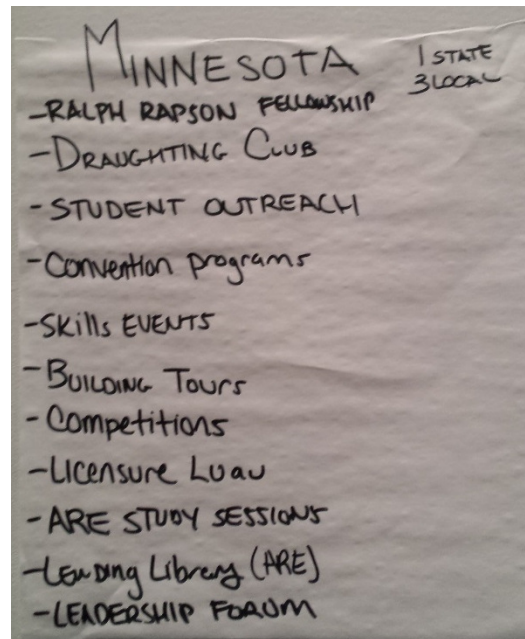 MINNESOTA
1 STATE
3 LOCAL
-RALPH RAPSON FELLOWSHIP
-DRAUGHTING CLUB
-STUDENT OUTREACH
-Convention programs
-Skills EVENTS
-BUILDING TOURS
-Competitions
-Licensure Luau
-ARE STUDY SESSIONS
-Lending Library (ARE)
-LEADERSHIP FORUM